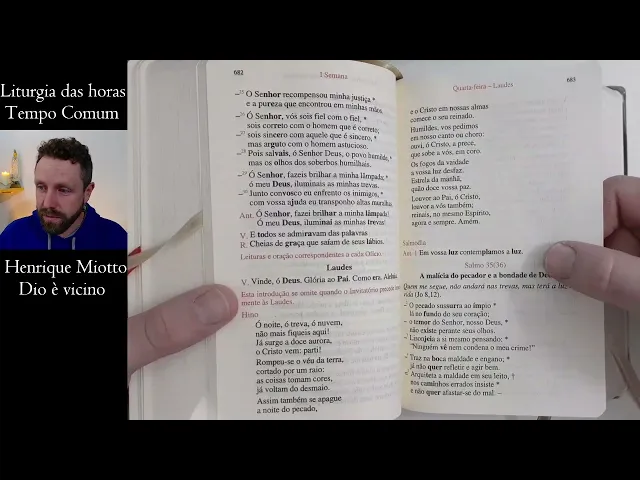 Liturgia das horas
Tempo Comum
Henrique Miotto
Dio è vicino
682
I Semana
–25 O Senhor recompensou minha justiça, *
e a pureza que encontrou em minhas mãos.
–26 Ó Senhor, vós sois fiel com o fiel, *
sois correto com o homem que é correto;
–27 sois sincero com aquele que é sincero, *
mas arguto com o homem astucioso.
–28 Pois salvais, ó Senhor Deus, o povo humilde, *
mas os olhos dos soberbos humilhais.
–29 Ó Senhor, fazeis brilhar a minha lâmpada; *
ó meu Deus, iluminais as minhas trevas.
–30 Junto convosco eu enfrento os inimigos, *
com vossa ajuda eu transponho altas muralhas.
Ant. Ó Senhor, fazei brilhar a minha lâmpada!
Ó meu Deus, iluminai as minhas trevas!
V. E todos se admiravam das palavras
R. Cheias de graça que saíam de seus lábios.
Leituras e oração correspondentes a cada Ofício.
Laudes
V. Vinde, ó Deus. Glória ao Pai. Como era. Aleluia.
Esta introdução se omite quando o Invitatório precede
mente às Laudes.
Hino
Ó noite, ó treva, ó nuvem,
não mais fiqueis aqui!
Já surge a doce aurora,
o Cristo vem: parti!
Rompeu-se o véu da terra,
cortado por um raio:
as coisas tomam cores,
já voltam do desmaio.
Assim também se apague
a noite do pecado,
Quarta-feira – Laudes
683
e o Cristo em nossas almas
comece o seu reinado.
Humildes, vos pedimos
em nosso canto ou choro:
ouvi, ó Cristo, a prece,
que sobe a vós, em coro.
Os fogos da vaidade
a vossa luz desfaz.
Estrela da manhã,
quão doce vossa paz.
Louvor ao Pai, ó Cristo,
louvor a vós também;
reinais, no mesmo Espírito,
agora e sempre. Amém.
Salmodia
Ant. 1 Em vossa luz contemplamos a luz.
Salmo 35(36)
A malícia do pecador e a bondade de
Quem me segue, não andará nas trevas, mas terá a luz da
vida (Jo 8,12).
–2 O pecado sussurra ao ímpio *
lá no fundo do seu coração;
– o temor do Senhor, nosso Deus, *
não existe perante seus olhos.
–3 Lisonjeia a si mesmo pensando: *
“Ninguém vê nem condena o meu crime!”
–4 Traz na boca maldade e engano; *
já não quer refletir e agir bem.
=5 Arquiteta a maldade em seu leito, †
nos caminhos errados insiste *
e não quer afastar-se do mal. –